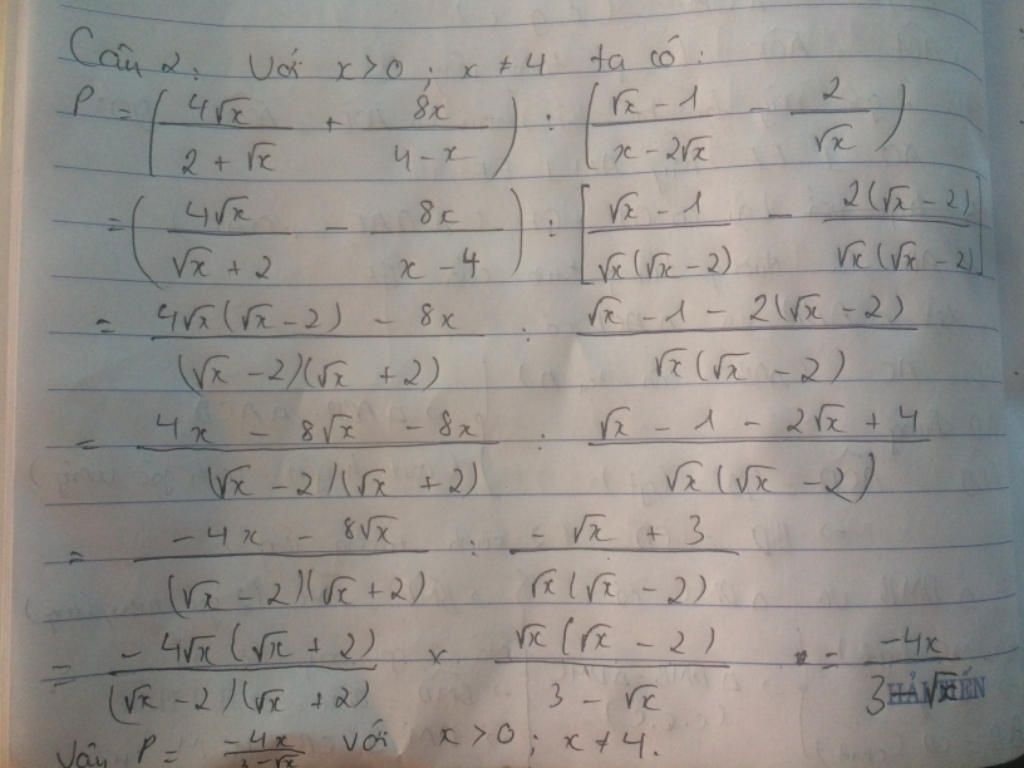 Câu 2: Với x>0; x≠4 ta có:
P = (4√x / (2 + √x) + 8x / (4 - x)) : ((√x - 1) / (x - 2√x) - 2 / √x)
= (4√x / (√x + 2) - 8x / (x - 4)) : [(√x - 1) / (√x(√x - 2)) - 2(√x - 2) / (√x(√x - 2))]
= (4√x(√x - 2) - 8x) / ((√x - 2)(√x + 2)) : (√x - 1 - 2(√x - 2)) / (√x(√x - 2))
= (4x - 8√x - 8x) / ((√x - 2)(√x + 2)) : (√x - 1 - 2√x + 4) / (√x(√x - 2))
= (-4x - 8√x) / ((√x - 2)(√x + 2)) : (-√x + 3) / (√x(√x - 2))
= -4√x(√x + 2) / ((√x - 2)(√x + 2)) × √x(√x - 2) / (3 - √x) = -4x / (3 - √x)
HẢI TIẾN
Vậy P = -4x / (3 - √x) với x > 0; x ≠ 4.